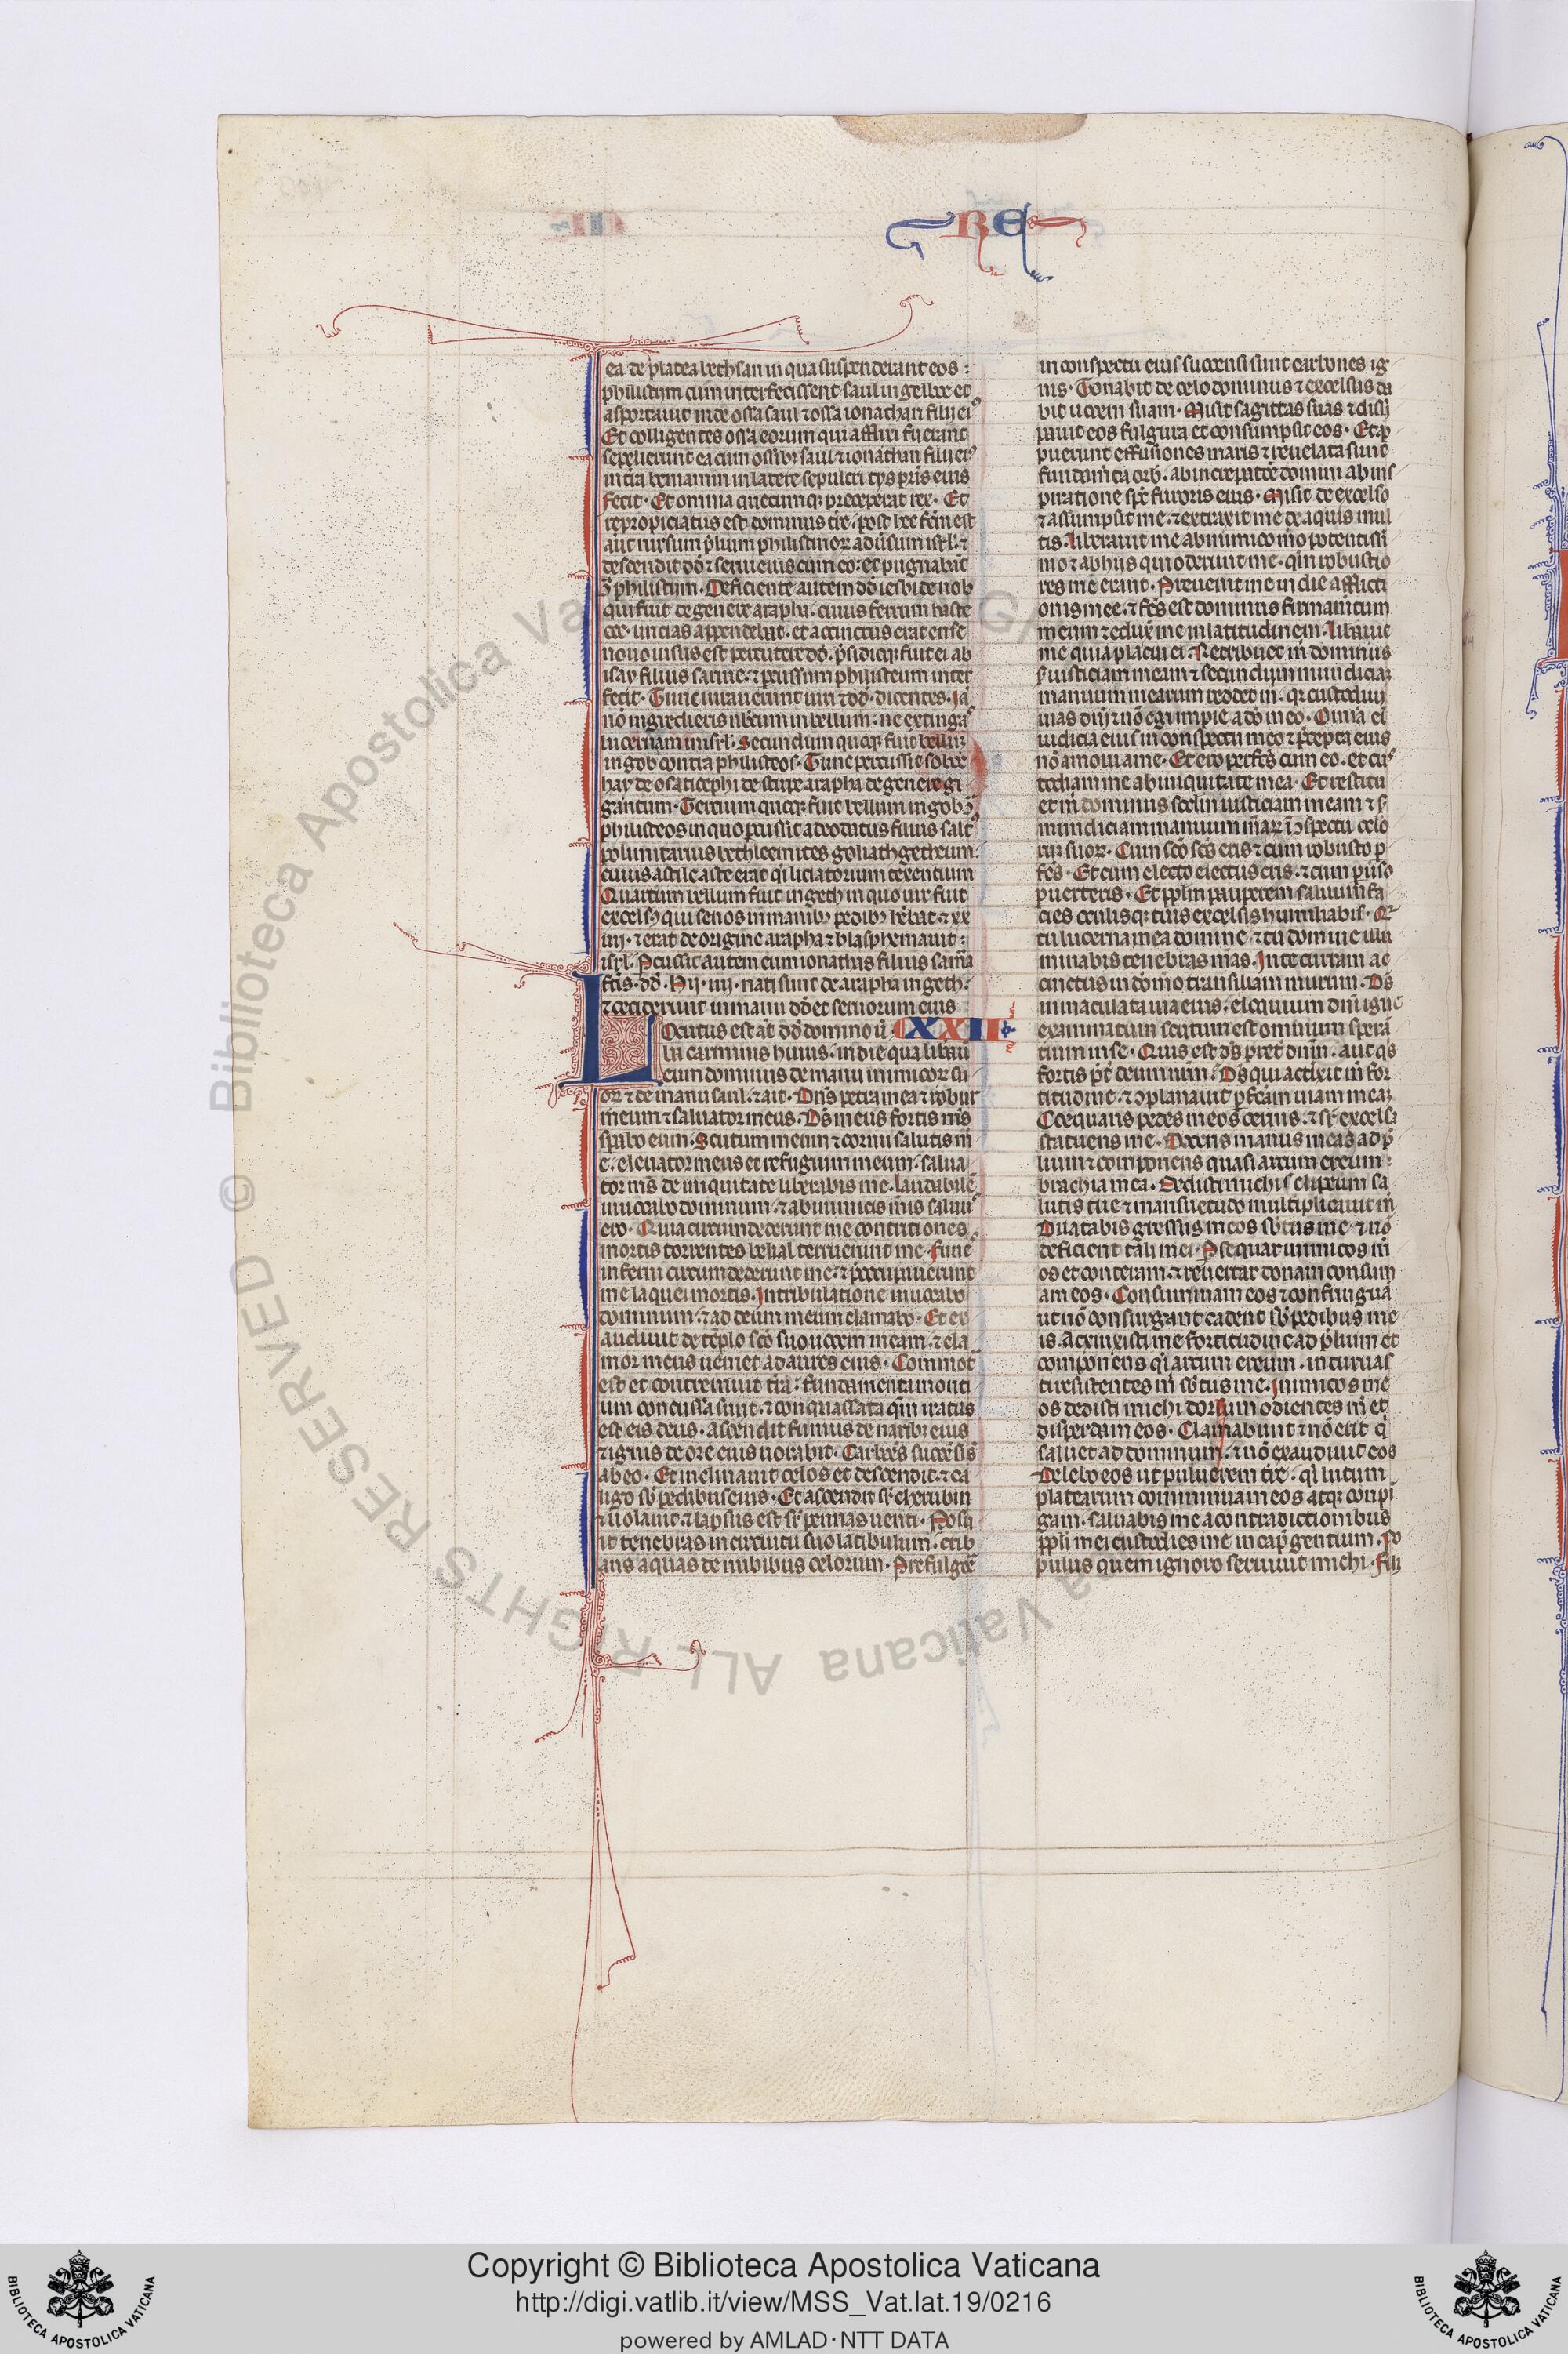 RE
ea de platea bethsan in qua suspenderant eos :
philistiim cum interfecissent saul in gelboe et
asportauit inde ossa saul ⁊ ossa ionathan filij eiꝰ
Et colligentes ossa eorum qui affixi fuerant
sepelierunt ea cum ossibꝫ saul ⁊ ionathan filij eiꝰ
in t̃ra beniamin in latere sepulcri cys pr̃is eius
fecit · Et omnia quecumqꝫ preceperat rex · Et
repropiciatus est dominus t̃re · post hec fc̃m est
aut̃ rursum p̃lium philistinoꝝ adũsum isrl̃ · ⁊
descendit dd̃ ⁊ serui eius cum eo : et pugnabãt
ↄ̃ philistijm · Deficiente autem dd̃ iesbi de nob
qui fuit de genere arapha · cuius ferrum haste
ccc · uncias appendebat · et accinctus erat ense
nouo nisus est percutere dd̃ · p̃sidioqꝫ fuit ei ab
isay filius saruie · ⁊ pcussum philisteum inter
fecit · Tunc iurauerunt uiri ⁊ dd̃ · dicentes · Iã
nõ ingredieris nb̃cum in bellum · ne extingãꝰ
lucernam in isrl̃ · Secundum quoqꝫ fuit bellũ
in gob contra philisteos · Tunc percussit sobbo
hay de osati cephi de stirpe arapha de genere gi
gantum · Tercium quoqꝫ fuit bellum in gob ↄ̃
philisteos in quo pcussit adeodatus filius salt̃
polimitarius bethleemites goliath getheum :
cuius astile aste erat q̃i liciatorium texentium
Quartum bellum fuit in geth in quo uir fuit
excelsꝰ qui senos in manibꝫ pedibꝫ hẽbat · ⁊ xx
iiij · ⁊ erat de origine arapha ⁊ blasphemauit :
isrl̃ · Pcussit autem eum ionathas filius sam̃a
fr̃is · dd̃ · Hij · iiij · nati sunt de arapha in geth :
⁊ ceciderunt in manu dd̃ et seruorum eius
Locutus est aũt dd̃ domino ũ CXXII
ba carminis huius · in die qua lib̃auit
eum dominus de manu inimicoꝝ su
oꝝ ⁊ de manu saul · ⁊ ait · Dñs petra mea ⁊ robur
meum ⁊ saluator meus · Ds̃ meus fortis m̃s
sp̃abo eum · Scutum meum ⁊ cornu salutis m̃
e · eleuator meus et refugium meum · salua
tor m̃s de iniquitate liberabis me · laudabilẽ
inuocabo dominum · ⁊ ab inimicis m̃is saluꝰ
ero · Quia circumdederunt me contritiones
mortis torrentes belial terruerunt me · Fune
inferni circumdederunt me · ⁊ p̃occupauerunt
me laquei mortis · In tribulatione inuocabo
dominum · ⁊ ad deum meum clamabo · Et ex
audiuit de tẽplo sc̃o suo uocem meam · ⁊ cla
mor meus ueniet ad aures eius · Commot
est et contremuit t̃ra : fundamenta monti
um concussa sunt · ⁊ conquassata qm̃ iratus
est eis deus · ascendit fumus de naribꝫ eius
⁊ ignis de ore eius uorabit · Carbões succẽsi st̃
ab eo · Et inclinauit celos et descendit · ⁊ ca
ligo sb̃ pedibus eius · Et ascendit sr̃ cherubin
⁊ uolauit · ⁊ lapsus est sr̃ pennas uenti · Posu
it tenebras in circuitu suo latibulum · crib
ans aquas de nubibus celorum · Prefulgoẽ
in conspectu eius succensi sunt carbones ig
nis · Tonabit de celo dominus ⁊ excelsus da
bit uocem suam · Misit sagittas suas ⁊ dissi
pauit eos fulgura et consumpsit eos · Et ap
puerunt effusiones maris ⁊ reuelata sunt
fundam̃ta orb̃ · ab increpatõe domini ab ins
piratione sp̃c furoris eius · Misit de excelso
⁊ assumpsit me · ⁊ extraxit me de aquis mul
tis · liberauit me ab inimico m̃o potentissi
mo ⁊ ab hijs qui oderunt me · qm̃ robustio
res me erant · Preuenit me in die afflicti
onis mee · ⁊ fc̃s est dominus firmam̃tum
meum ⁊ eduxit me in latitudinem · lib̃auit
me quia placui ei · Retribuet m̃ dominus
s̃ iusticiam meam ⁊ secundum mundiciaꝫ
manuum mearum reddet m̃ · qꝛ custodiui
uias dñi ⁊ nõ egi impie a dõ meo · Omia ei
iudicia eius in conspectu meo ⁊ p̃cepta eius
nõ amoui a me · Et ero perfc̃s cum eo · et cuꝰ
todiam me ab iniquitate mea · Et restitu
et m̃ dominus scd̃m iusticiam meam ⁊ s̃
mundiciam manuum m̃arꝫ ĩ ↄspectu oclo
rum suoꝝ · Cum sc̃o sc̃s eris ⁊ cum robusto p
fc̃s · Et cum electo electus eris · ⁊ cum p̃uso
puerteris · Et ppl̃m pauperem saluum fa
cies oculisqꝫ tuis excelsis humiliabis · Qꝛ
tu lucerna mea domine ⁊ tu domine illu
minabis tenebras m̃as · In te curram ac
cinctus in dõ m̃o transiliam murum · Ds̃
immaculata uia eius · eloquium dñi igne
examinatum scutum est omnium sperã
tium in se · Quis est ds̃ p̃ter dñm · aut qͥs
fortis p̃t̃ deum nr̃m · Ds̃ qui accixit m̃ for
titudine · ⁊ ↄplanauit p̃fc̃am uiam meaꝫ
Coequans pedes meos ceruis · ⁊ sr̃ excelsa
statuens me · Docens manus meas ad p̃
lium ⁊ componens quasi arcum ereum :
brachia mea · Dedisti michi clipeum sa
lutis tue ⁊ mansuetudo multiplicauit m̃
Dilatabis gressus meos sb̃tus me · ⁊ nõ
deficient tali mei · Psequar inimicos m̃
os et conteram · ⁊ reuertar donam consum
am eos · Consummam eos ⁊ confringam
ut nõ consurgant cadent sb̃ pedibus me
is · Accinxisti me fortitudine ad p̃lium et
componens q̃i arcum ereum · incuruas
ti resistentes m̃ sb̃tus me · Inimicos me
os dedisti michi dorsum odientes m̃ et
disperdam eos · Clamabunt ⁊ nõ erit q̃
saluet ad dominum · ⁊ nõ exaudiuit eos
Delebo eos ut puluerem t̃re · q̃i lutum
platearum comminuam eos atqꝫ conpi
gam · saluabis me a contradictionibus
ppl̃i mei custodies me in cap̃ gentium · Po
pulus quem ignoro seruiuit michi · Filij
© Biblioteca Apostolica Vaticana ALL RIGHTS RESERVED
Copyright © Biblioteca Apostolica Vaticana
http://digi.vatlib.it/view/MSS_Vat.lat.19/0216
powered by AMLAD·NTT DATA
BIBLIOTECA APOSTOLICA VATICANA
BIBLIOTECA APOSTOLICA VATICANA